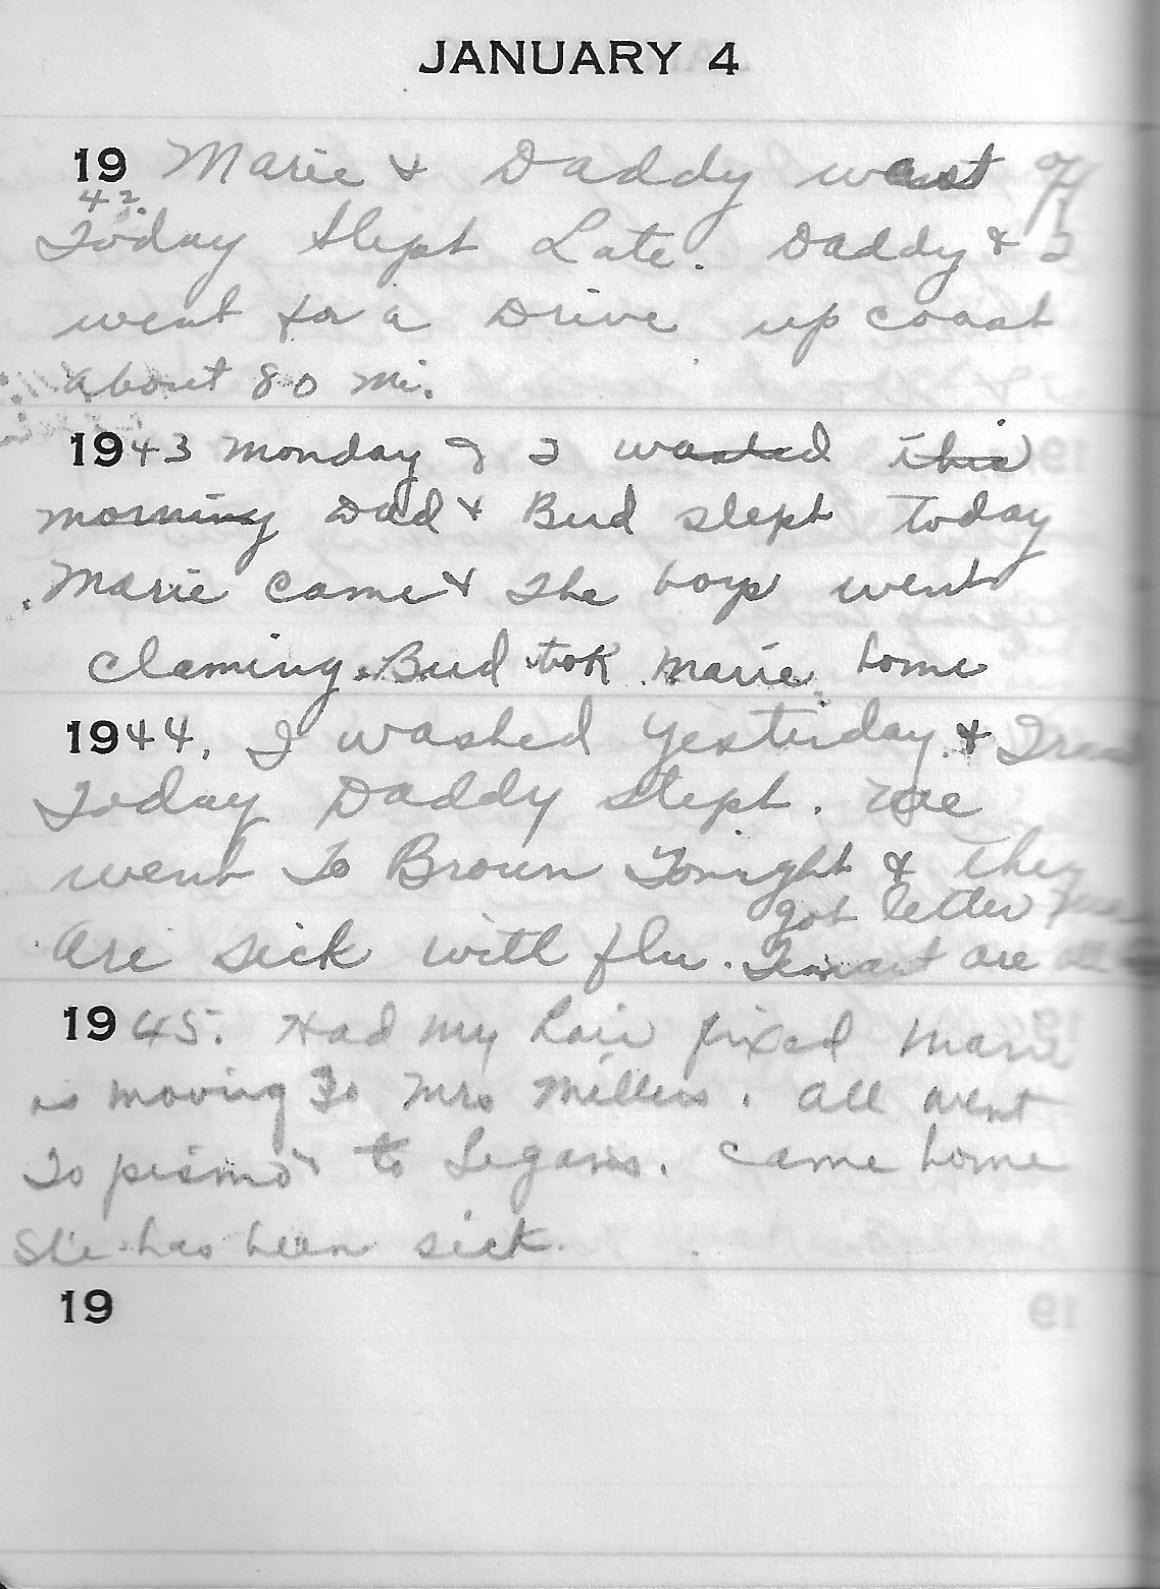 JANUARY 4
19 Marie & Daddy was off
42.
Today Slept Late. Daddy & I
went for a Drive up coast
about 80 mi.
1943 Monday I washed this
morning Dad & Bud slept Today
Marie came & She boys went
Claming. Bud tok Marie home
1944. I washed yesterday &
Today Daddy slept. We
went To Brown Tonight & They
got letter
Are sick with flu. are all
1945. Had my hair fixed Marie
is moving To Mrs Millers. All went
To pismo & to Segars. Came home
She has been sick.
19